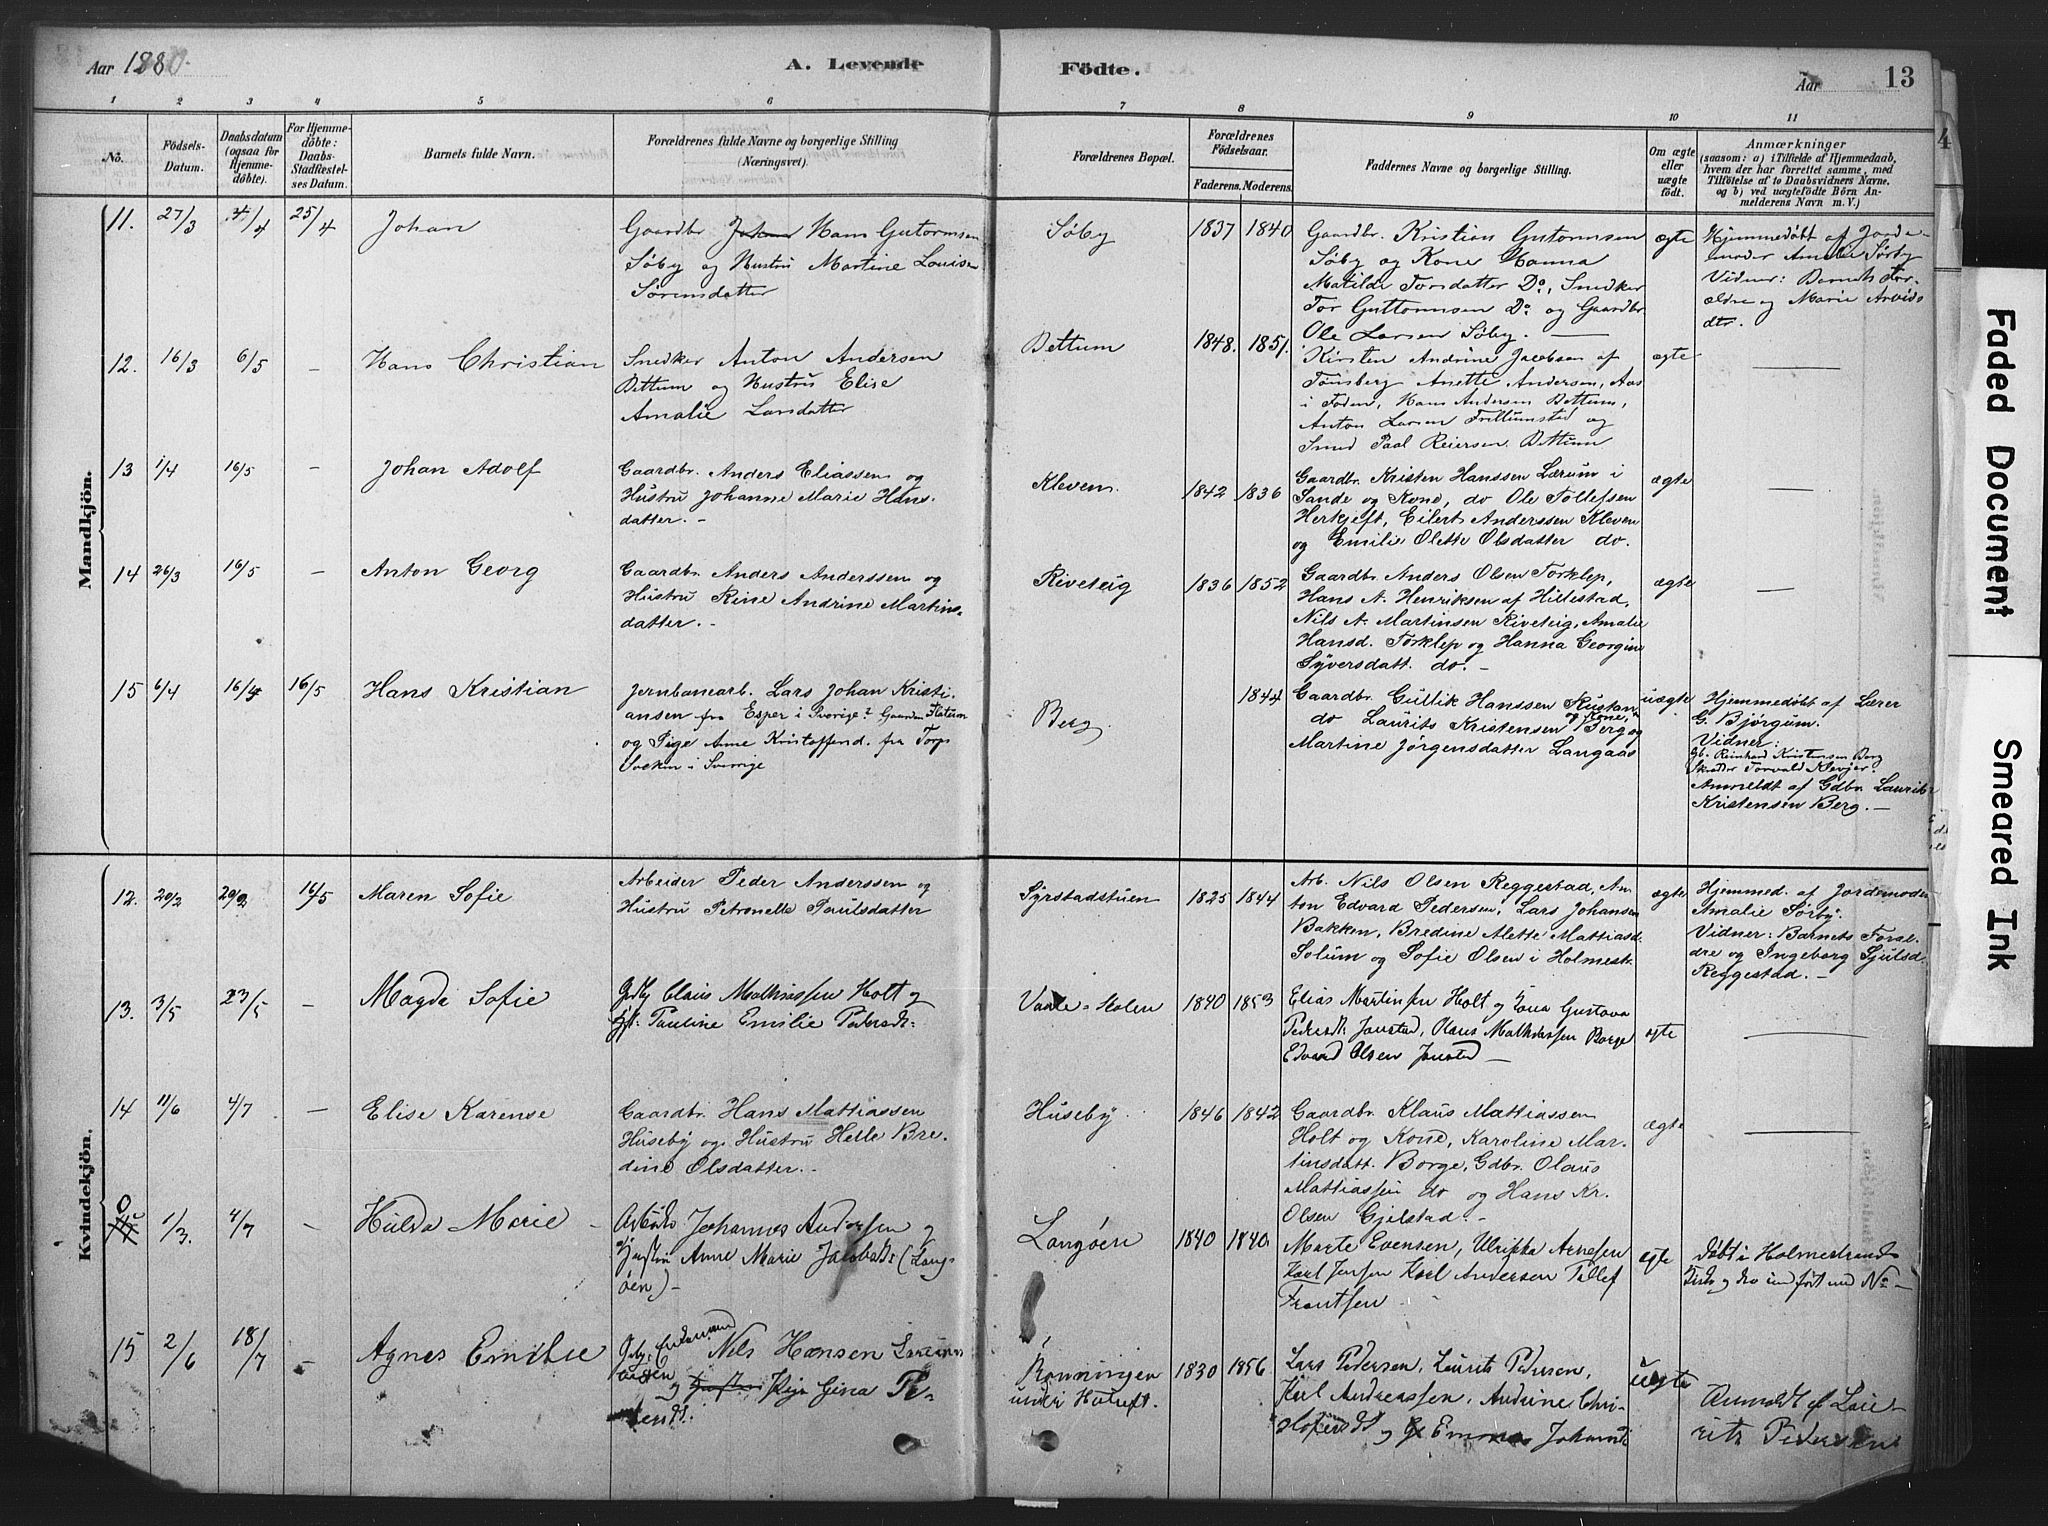 Aar 1880.
A. Levende Födte.
Aar
13
1 2 3 4 5 6 7 8 9 10 11
No.
Födsels-Datum.
Daabsdatum (ogsaa for Hjemmedöbte).
For Hjemmedöbte: Daabs-Stadfæstelses Datum.
Barnets fulde Navn.
Forældrenes fulde Navne og borgerlige Stilling (Næringsvei).
Forældrenes Bopæl.
Forældrenes Födselsaar.
Faderens. Moderens.
Faddernes Navne og borgerlige Stilling.
Om ægte eller uægte födt.
Anmærkninger
(saasom: a) i Tilfælde af Hjemmedaab,
hvem der har forrettet samme, med
Tilföielse af to Daabsvidners Navne,
og b) ved uægtefödte Börn Anmelderens Navn m. V.)
Mandkjön.
11. 27/3 4/4 25/4 Johan
Gaardbr. Johan Hans Gutormsen
Söby og Hustru Martine Louise
Sörensdatter
Söby 1837 1840
Gaardbr. Kristian Gutormsen
Söby og Kone Hanna
Matilde Torsdatter Do, Snedker
Tor Guttormsen Do og Gaardbr.
Ole Larsen Söby.
ægte
Hjemmedöbt af Jorde-
moder Amalie Sörby
Vidner: Barnets For-
ældre og Marie Arvids
dtr.
12. 16/3 6/5 - Hans Christian
Snedker Anton Andersen
Bettum og Hustru Elise
Amalie Larsdatter
Bettum 1848. 1851.
Kirsten Andrine Jacobsen af
Tönsberg Anette Andersen, Aas
i Foden, Hans Andersen Bettum,
Anton Larsen og
Smed Paal Reiersen Bettum
ægte
13 1/4 16/5 - Johan Adolf
Gaardbr. Anders Eliassen og
Hustru Johanne Marie Hans-
datter. -
Kleven 1842 1836
Gaardbr. Kristen Hanssen Lærum i
Sande og Kone, do Ole Tollefsen
Herkjeft, Eilert Anderssen Kleven
og Emilie Olette Olsdatter do.
ægte
14 26/3 16/5 - Anton Georg
Gaardbr. Anders Anderssen og
Hustru Rine Andrine Martins-
datter. -
Riveteig 1836 1852
Gaardbr. Anders Olsen Torklep,
Hans A. Henriksen af Hillestad,
Nils A. Martinsen Riveteig, Amalie
Hansd. Torklep og Hanna Georgine
Syversdatt. do. -
ægte
15 6/4 16/4 16/5 Hans Kristian
Jernbanearb. Lars Johan Kristi-
ansen fra Esper i Sverige? Gaarden
og Pige Anne Kristoffersd. fra Torp
Socken i Sverrige
Berg 1844
Gaardbr. Gullik Hanssen
og Kone,
do Laurits Kristensen Berg og
Martine Jörgensdatter Langaas
uægte
Hjemmedöbt af Lærer
G. Bjórgum.
Vidner:
Gb. Reinhard Kristensen Berg
Skrædder Torvald Klevjer.
Anmeldt af Gdbr. Laurits
Kristensen Berg. -
Kvindekjön.
12. 20/2 29/2 16/5 Maren Sofie
Arbeider Peder Anderssen og
Hustru Petronelle Paulsdatter
Syrstadstuen 1825 1844
Arb. Nils Olsen Reggestad, An-
ton Edvard Pedersen, Lars Johansen
Bakken, Bredine Alette Mattiasd.
Solum og Sofie Olsen i Holmestr.
ægte
Hjemmed. af Jordemoder
Amalie Sörby.
Vidner: Barnets Foræl-
dre og Ingeborg Sjulsd.
Reggestad. -
13. 3/5 23/5 - Magda Sofie
Gdbr Claus Mathiassen Holt og
Hst: Pauline Emilie Pedersdt:
Vaale-Holen 1840 1853
Elias Martinsen Holt og Gustava
Pedersdt. Jonstad, Olaus Mathiassen Borge
Edvard Olsen Jonstad -
egte
14 11/6 4/7 - Elise Karense
Gaardbr. Hans Mattiassen
Huseby og Hustru Helle Bre-
dine Olsdatter. -
Huseby 1846 1842
Gaardbr. Klaus Mattiassen
Holt og Kone, Karoline Mar-
tinsdatt. Borge, Gdbr. Olaus
Mattiassen do og Hans Kr.
Olsen Gjelstad. -
ægte
0 1/3. 4/7 - Hulda Marie -
Johannes Andersen og
Hustru Anne Marie Jacobsdt: (Lang-
öen) -
Langöen 1840 1840
Marte Evensen, Ulrikka Arnesen
Karl Jensen Karl Andersen Tollef
Frantsen -
egte
döbt i Holmestrand
og der indfört med No -
15 2/6 18/7 - Agnes Emilie
Nils Hansen
og Hustru Pige Gina Pe-
Rönningen
under 1830 1856
Lars Pedersen, Laurits Pedersen,
Karl Andreassen, Andrine Chri-
stofersdt og Emma Johannsd
uegte
Anmeldt af Lau-
rits Pedersen
Faded Document
Smeared Ink